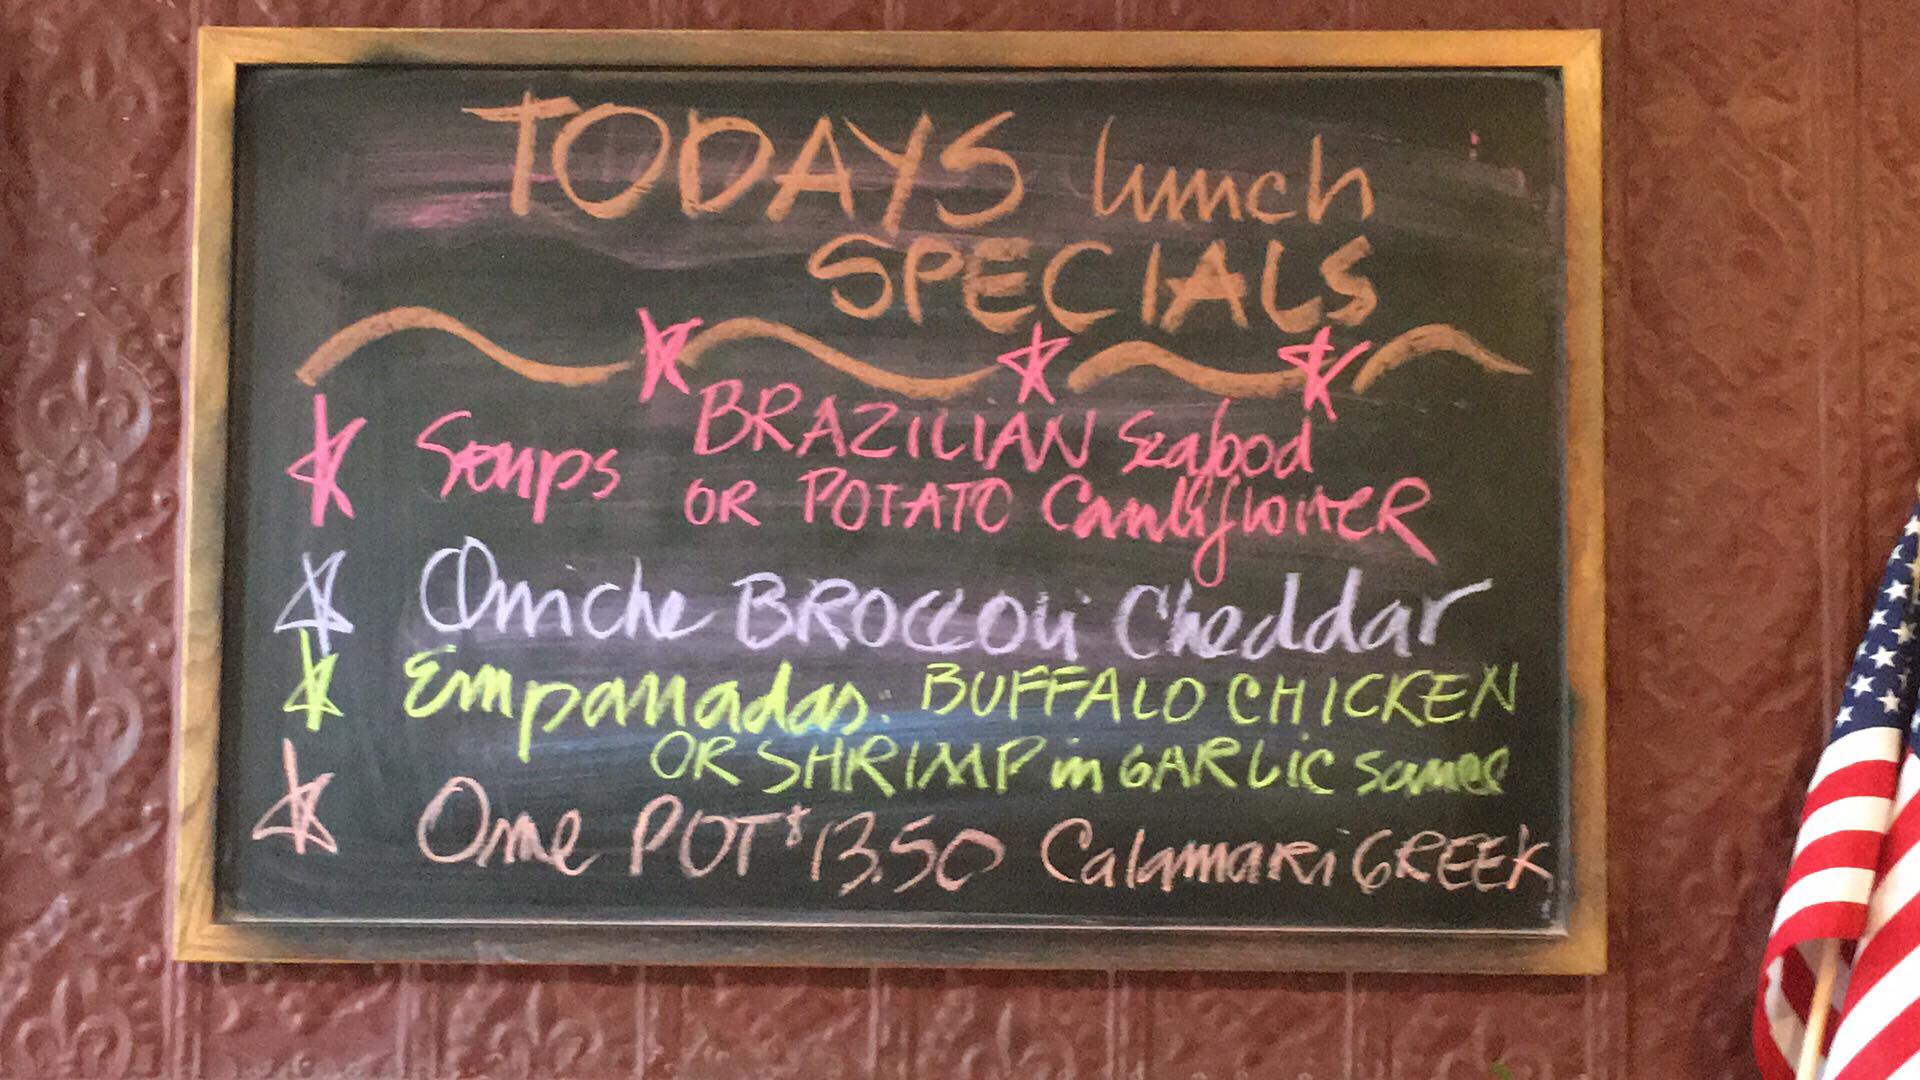 TODAYS lunch
SPECIALS
Soups BRAZILIAN Seafood
OR POTATO CauliflowER
Quiche BROCCOli Cheddar
Empanadas. BUFFALO CHICKEN
OR SHRIMP in GARLIC sauce
One POT $13.50 CalamaRi GREEK